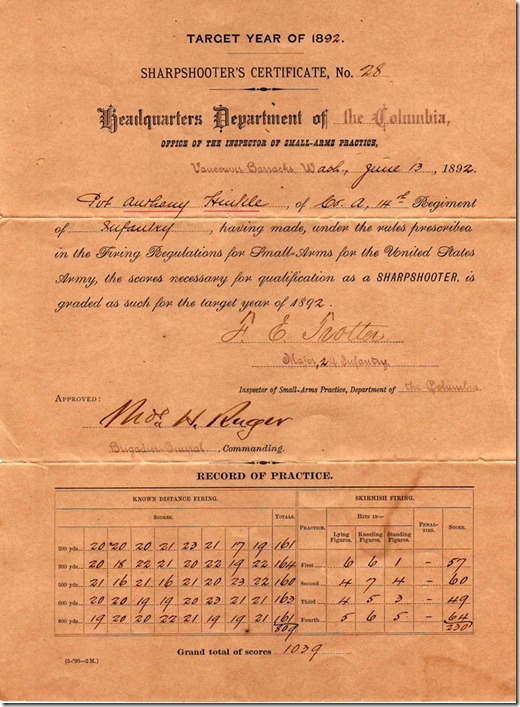 TARGET YEAR OF 1892.
SHARPSHOOTER'S CERTIFICATE, No. 28
Headquarters Department of the Columbia,
OFFICE OF THE INSPECTOR OF SMALL-ARMS PRACTICE,
Vancouver Barracks, Wash., June 13, 1892.
Pvt Anthony Hinkle, of Co. A, 14th Regiment
of Infantry, having made, under the rules prescribed
in the Firing Regulations for Small-Arms for the United States
Army, the scores necessary for qualification as a SHARPSHOOTER, is
graded as such for the target year of 1892.
F. E. Trotter
Major, Infantry,
Inspector of Small-Arms Practice, Department of the Columbia.
APPROVED:
Thos. H. Ruger
Brigadier-General, Commanding.
RECORD OF PRACTICE.
KNOWN DISTANCE FIRING. SKIRMISH FIRING.
SCORES. TOTALS. PRACTICE. HITS IN— PENALTIES. SCORE.
Lying Figures. Kneeling Figures. Standing Figures.
200 yds... 20 20 20 21 23 21 17 19 161 First 6 6 1 – 57
300 yds... 20 18 22 21 20 22 19 22 164 Second 4 7 4 – 60
500 yds... 21 16 21 16 21 20 23 22 160 Third 4 5 3 – 49
600 yds... 20 20 19 19 20 23 21 21 163 Fourth 5 6 5 – 64
800 yds... 19 20 20 22 21 19 19 21 161 230
809
Grand total of scores 1039
(5-'90-2 M.)